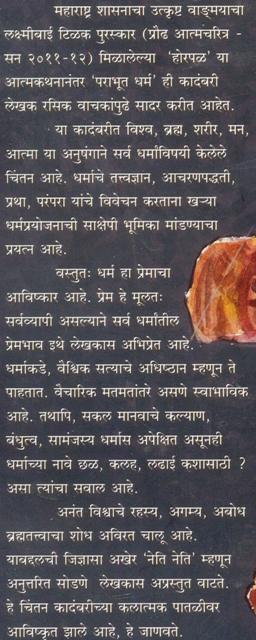 महाराष्ट्र शासनाचा उत्कृष्ट वाङ्मयाचा
लक्ष्मीबाई टिळक पुरस्कार (प्रौढ आत्मचरित्र -
सन २०११-१२) मिळालेल्या 'होरपळ' या
आत्मकथनानंतर 'पराभूत धर्म' ही कादंबरी
लेखक रसिक वाचकांपुढे सादर करीत आहेत.
या कादंबरीत विश्व, ब्रह्म, शरीर, मन,
आत्मा या अनुषंगाने सर्व धर्मांविषयी केलेले
चिंतन आहे. धर्मांचे तत्त्वज्ञान, आचरणपद्धती,
प्रथा, परंपरा यांचे विवेचन करताना खऱ्या
धर्मप्रयोजनाची साक्षेपी भूमिका मांडण्याचा
प्रयत्न आहे.
वस्तुतः धर्म हा प्रेमाचा
आविष्कार आहे. प्रेम हे मूलतः
सर्वव्यापी असल्याने सर्व धर्मांतील
प्रेमभाव इथे लेखकास अभिप्रेत आहे.
धर्माकडे, वैश्विक सत्याचे अधिष्ठान म्हणून ते
पाहतात. वैचारिक मतमतांतरे असणे स्वाभाविक
आहे. तथापि, सकल मानवाचे कल्याण,
बंधुत्व, सामंजस्य धर्मास अपेक्षित असूनही
धर्माच्या नावे छळ, कलह, लढाई कशासाठी ?
असा त्यांचा सवाल आहे.
अनंत विश्वाचे रहस्य, अगम्य, अबोध
ब्रह्मतत्त्वाचा शोध अविरत चालू आहे.
याबद्दलची जिज्ञासा अखेर 'नेति नेति' म्हणून
अनुत्तरित सोडणे लेखकास अप्रस्तुत वाटते.
हे चिंतन कादंबरीच्या कलात्मक पातळीवर
आविष्कृत झाले आहे, हे जाणवते.